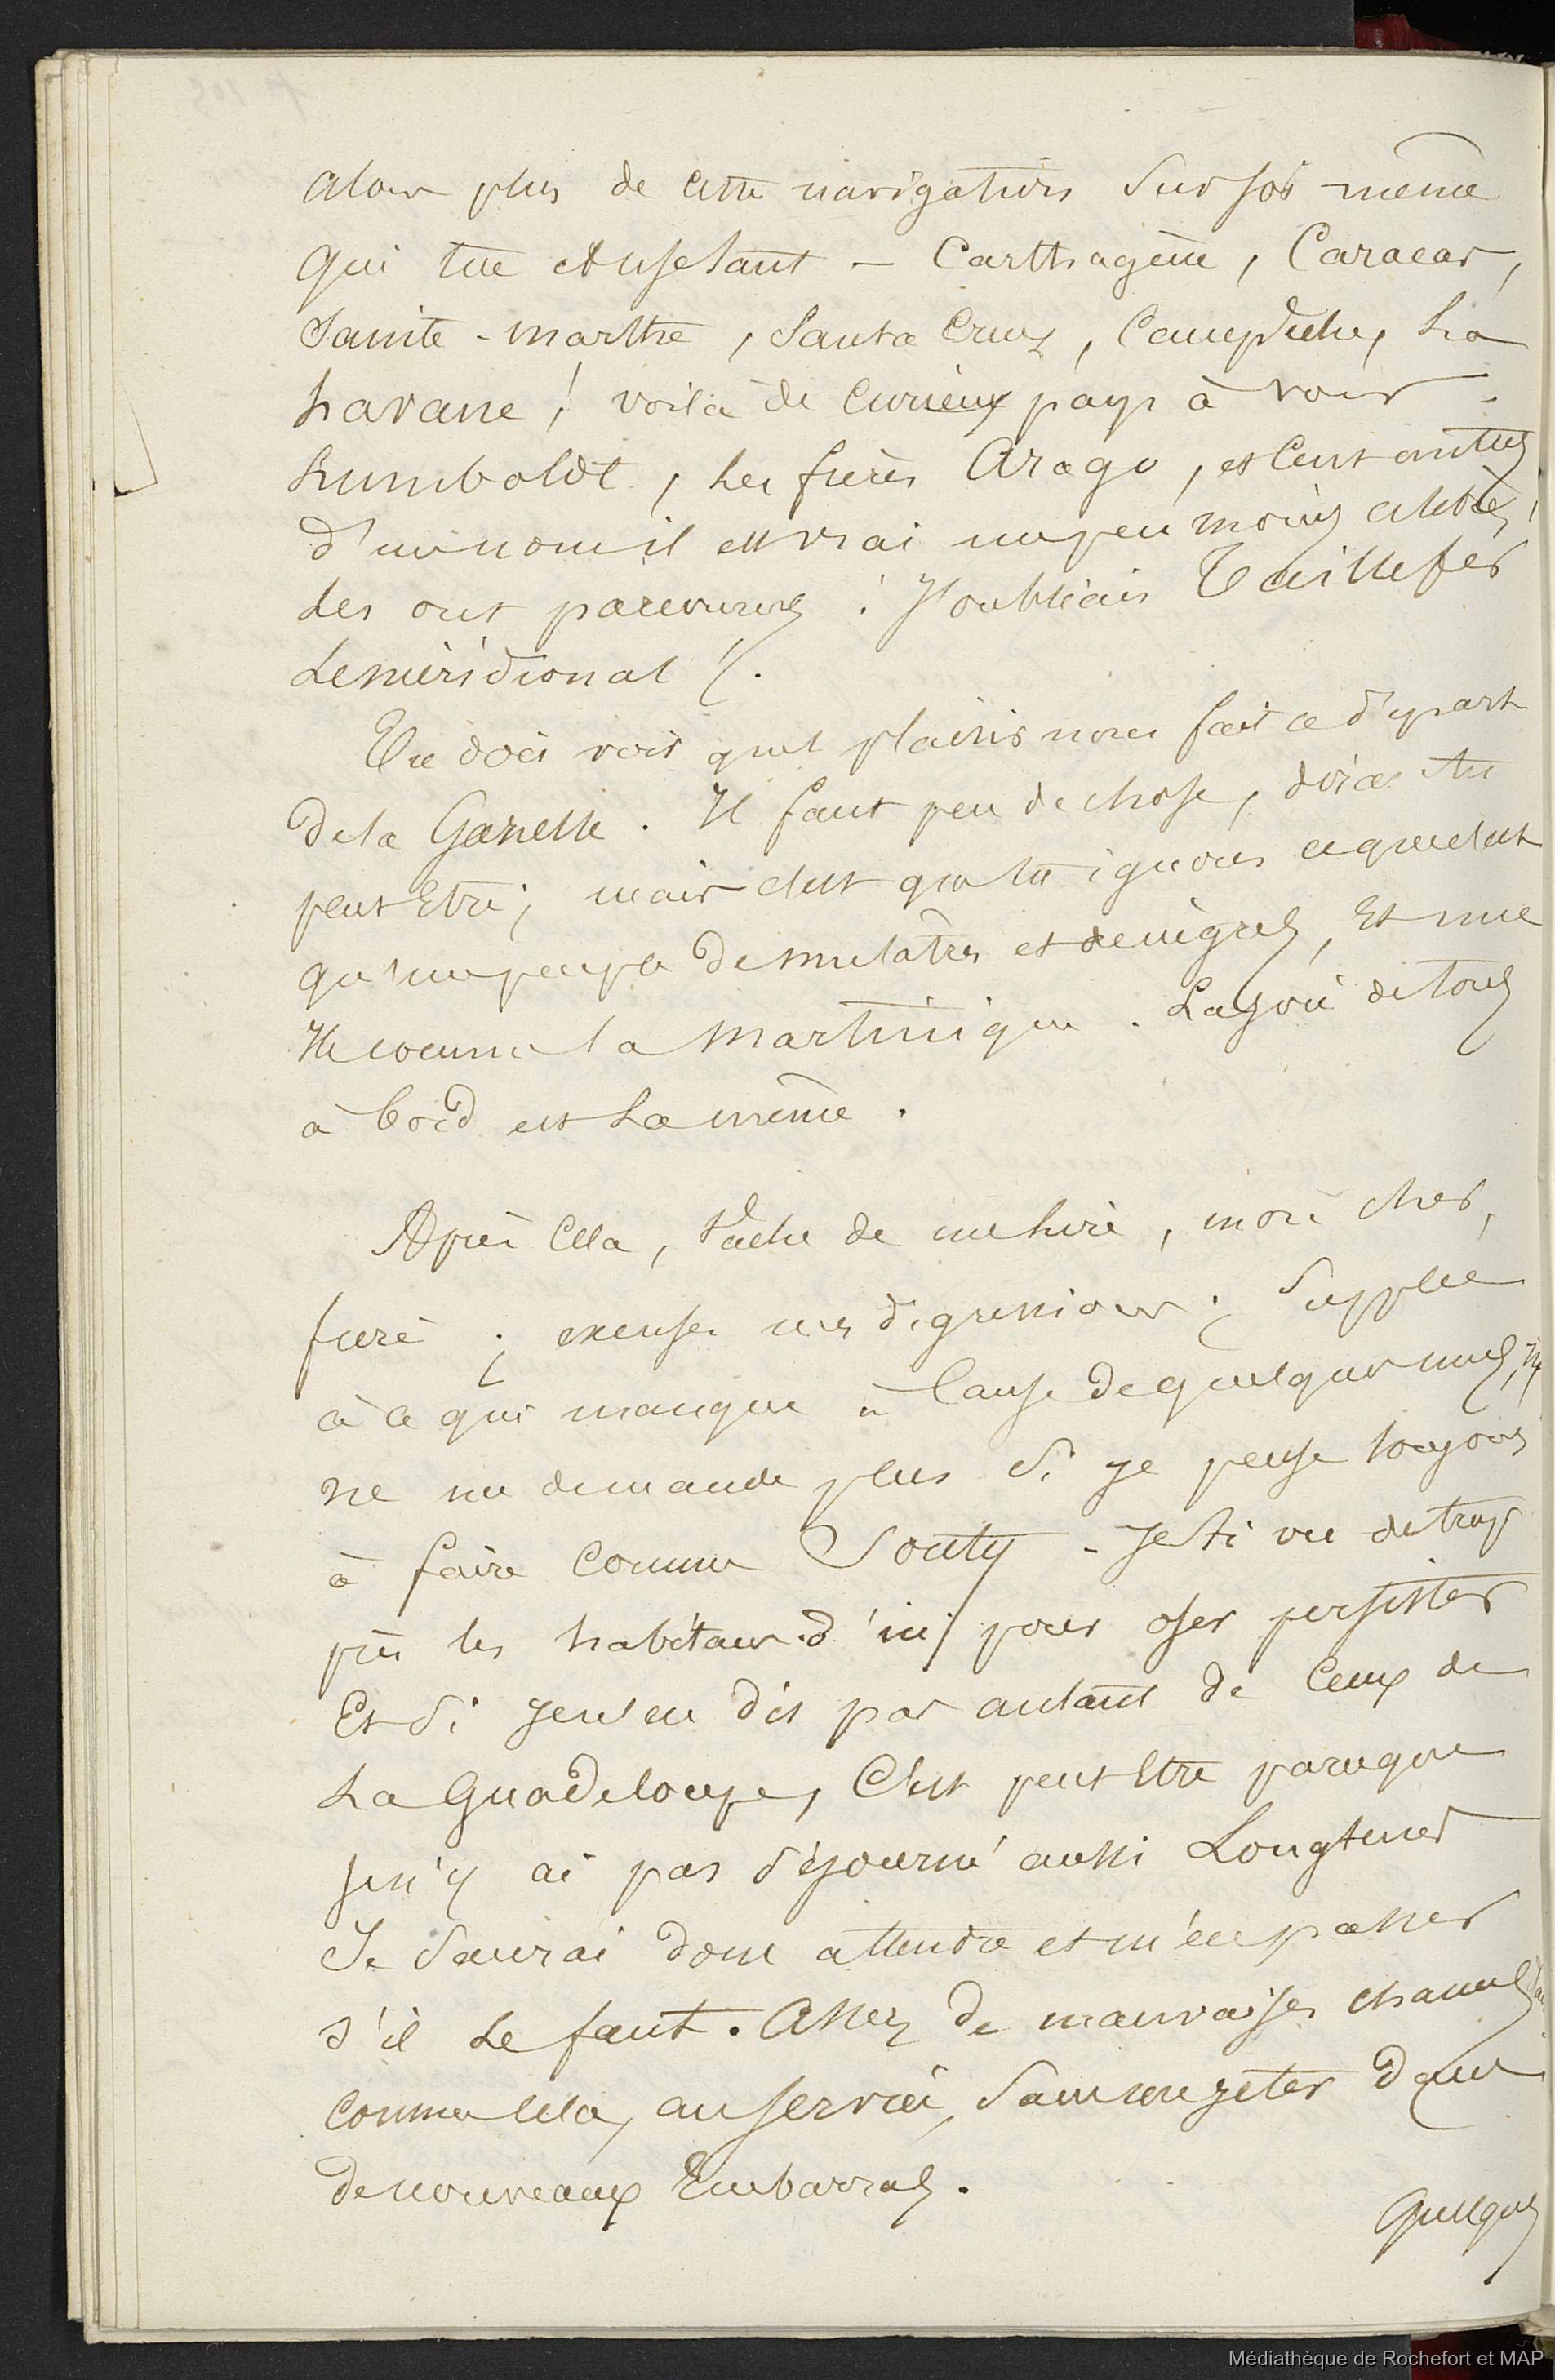 alors plus de cette navigation sur soi même
qui tue cependant — Carthagène, Caracas,
Sainte-marthe, Santa Cruz, Campêche, La
havane ! voilà de curieux pays à voir -
humboldt, les frères Arago, et cent autres
d'un nom il est vrai un peu moins célèbre,
les ont parcourus ! J'oubliais Taillefer
Le méridional !
Tu dois voir quel plaisir nous fait ce départ
de la Gazelle. Il faut peu de chose, diras tu
peut être ; mais c'est que tu ignores ce que c'est
qu'un peuple de mulâtres et de nègres, Et une
Ile comme la Martinique. La joie de tous
à bord est la même.
Après cela, tâche de me lire, mon cher
frère ; excuse mes digressions ; supplée
à ce qui manque à cause de quelques unes, Et
ne me demande plus si je pense toujours
à faire comme Souty - Je les ai vu de trop
près les habitans d'ici pour oser persister
Et si je n'en dis pas autant de ceux de
La Guadeloupe, C'est peut Etre parce que
je n'y ai pas séjourné aussi Longtems
Je saurai donc attendre et m'en passer
s'il le faut. Assez de mauvaises chances
comme cela, au service, sans me jeter dans
de nouveaux Embarras.
Quelques
Médiathèque de Rochefort et MAP